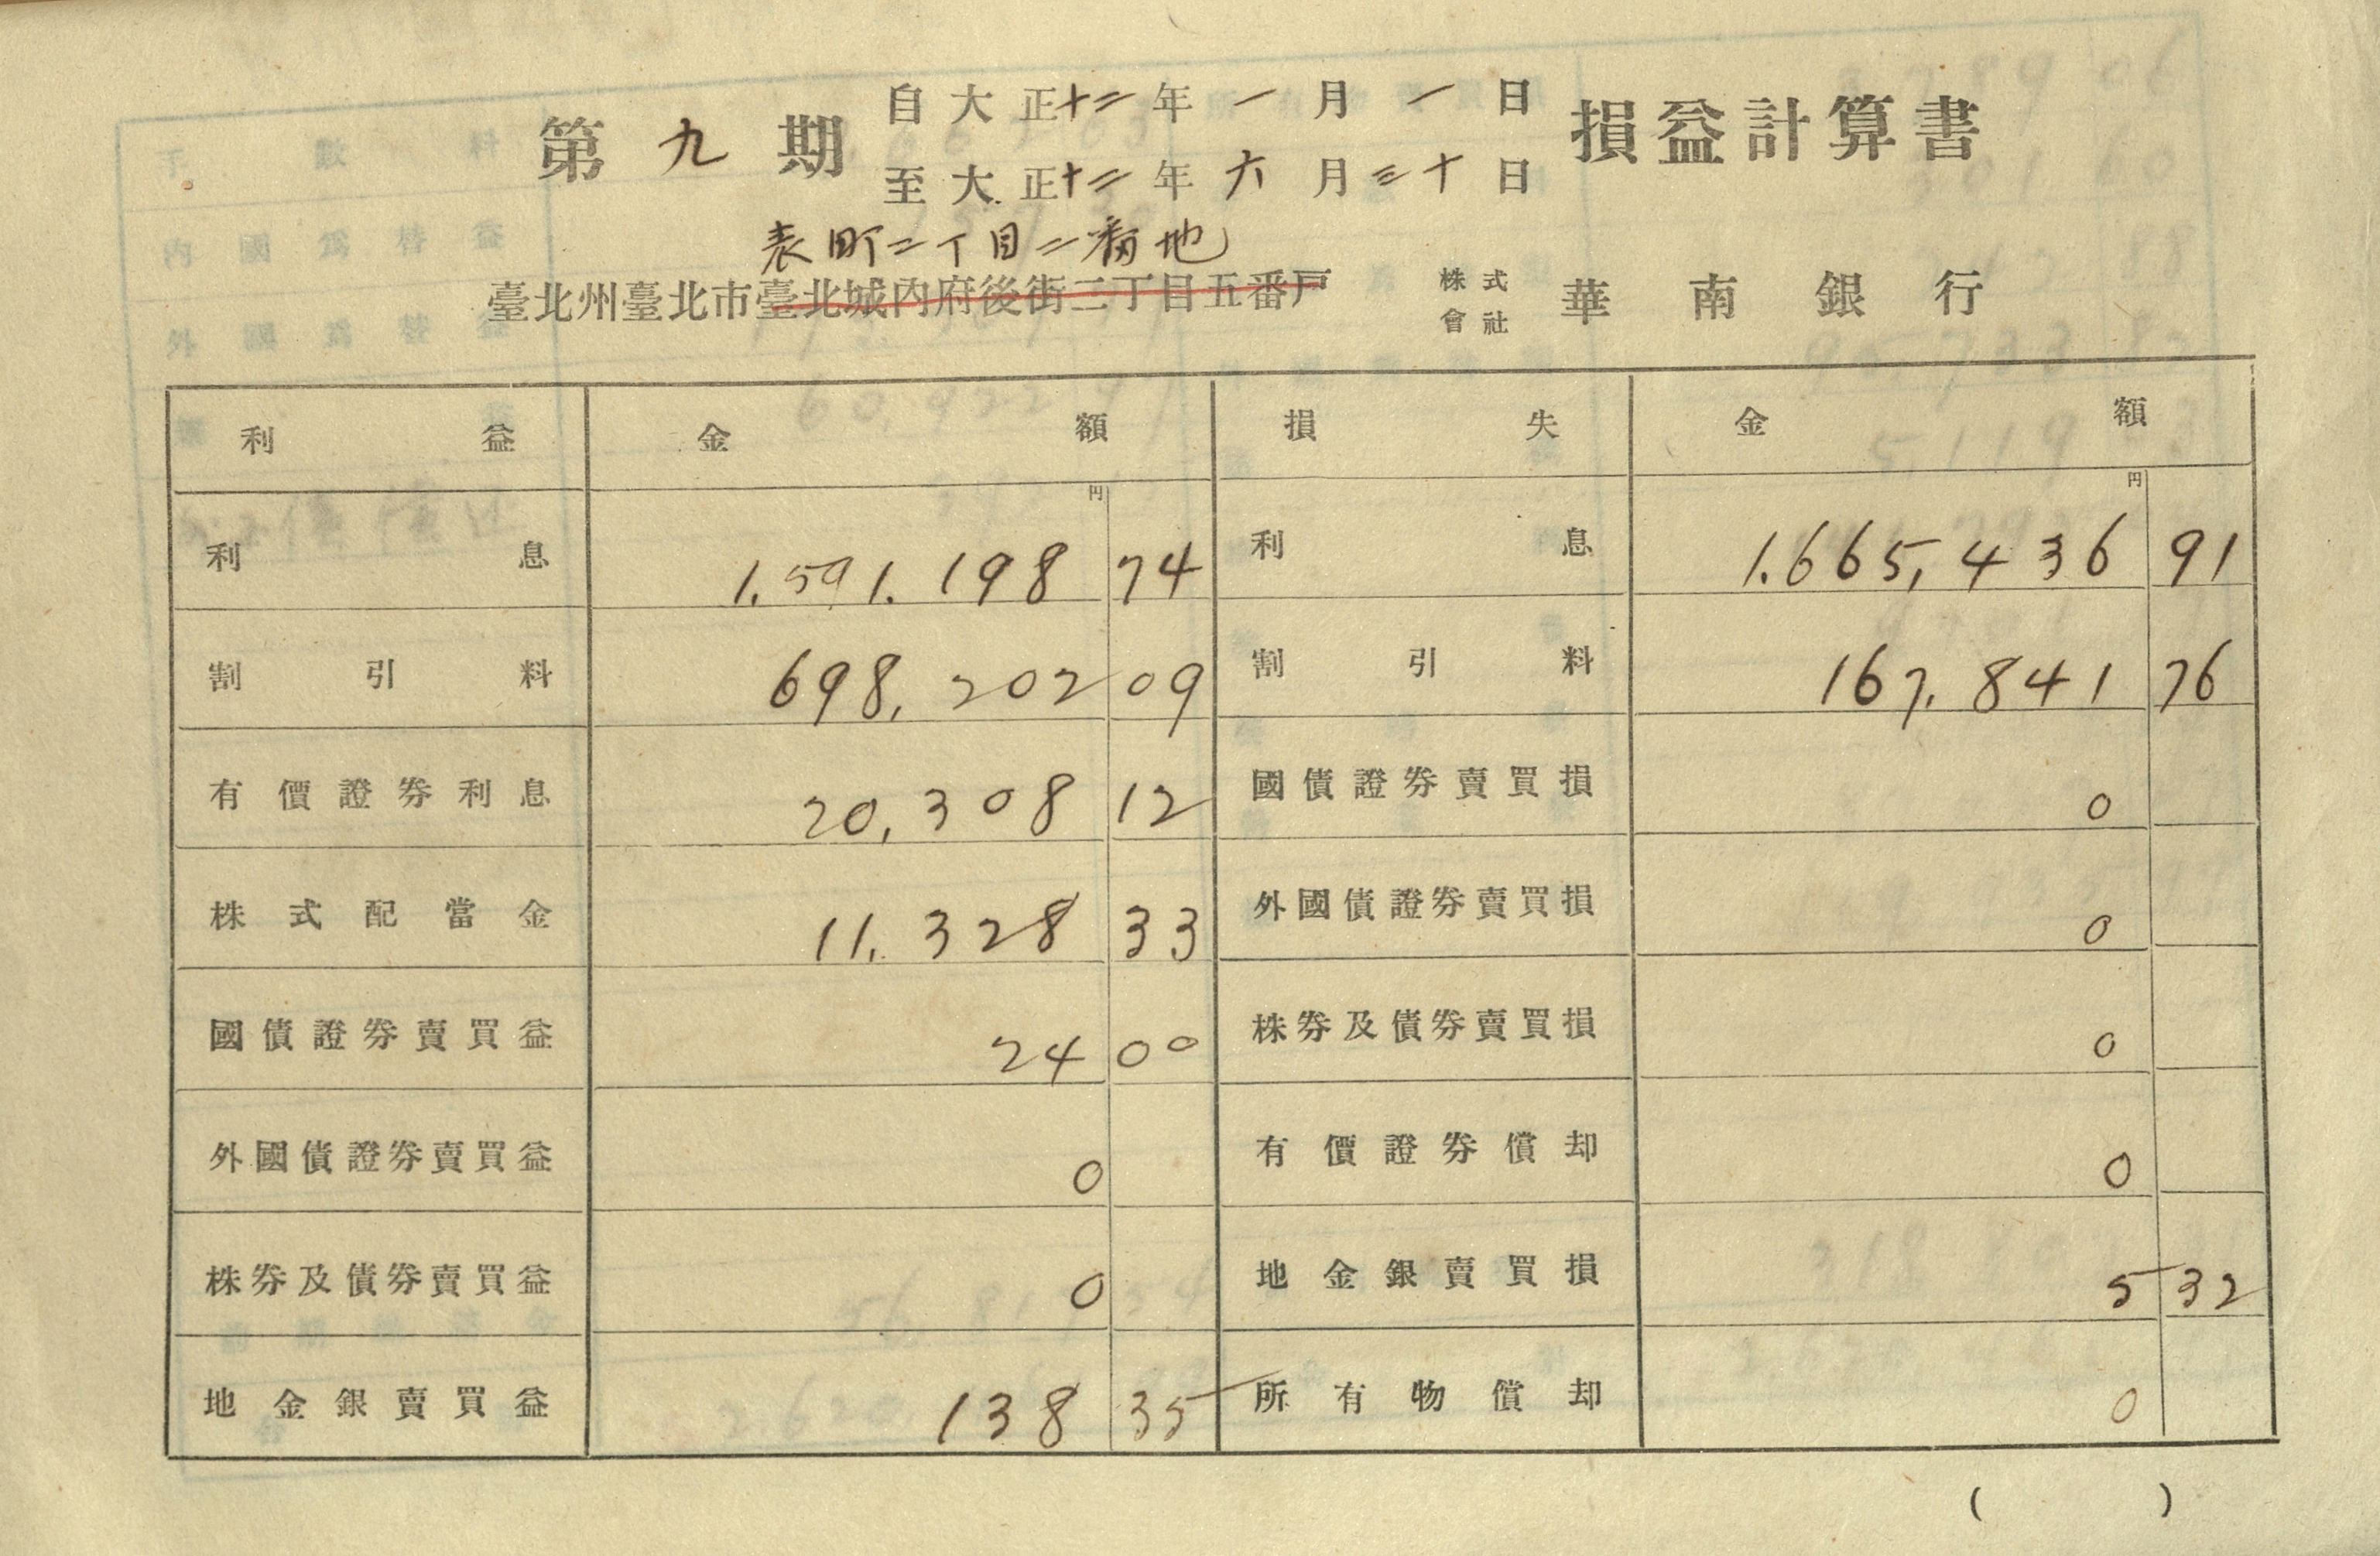 第九期 自大正十二年一月一日 損益計算書
至大正十二年六月三十日
表町二丁目二番地
臺北州臺北市臺北城內府後街二丁目五番戸 株式會社 華南銀行
利益 金額 損失 金額
円 円
利息 1.591.198 74 利息 1.665,436 91
割引料 698,202 09 割引料 167.841 76
有價證券利息 20,308 12 國債證券賣買損 0
株式配當金 11.328 33 外國債證券賣買損 0
國債證券賣買益 24 00 株券及債券賣買損 0
外國債證券賣買益 0 有價證券償却 0
株券及債券賣買益 0 地金銀賣買損 5 32
地金銀賣買益 138 35 所有物償却 0
( )